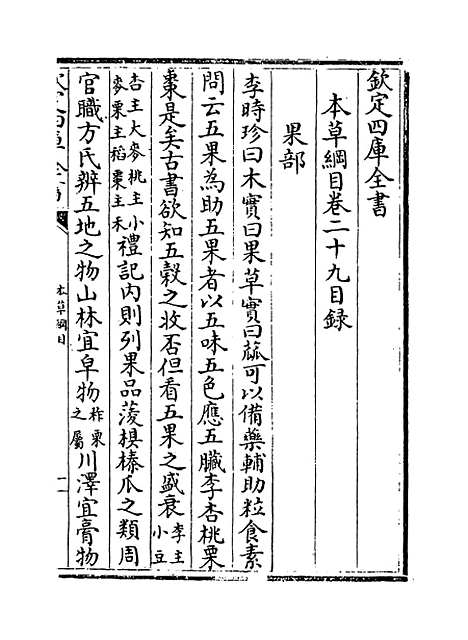 欽定四庫全書
本草綱目卷二十九目錄
果部
李時珍曰木實曰果草實曰蓏可以備藥輔助粒食素
問云五果為助五果者以五味五色應五臟李杏桃栗
棗是矣古書欲知五穀之收否但看五果之盛衰李主小豆
杏主大麥桃主小麥栗主稻棗主禾禮記內則列果品蔆椇榛瓜之類周
官職方氏辨五地之物山林宜皁物柞栗之屬川澤宜膏物
本草綱目